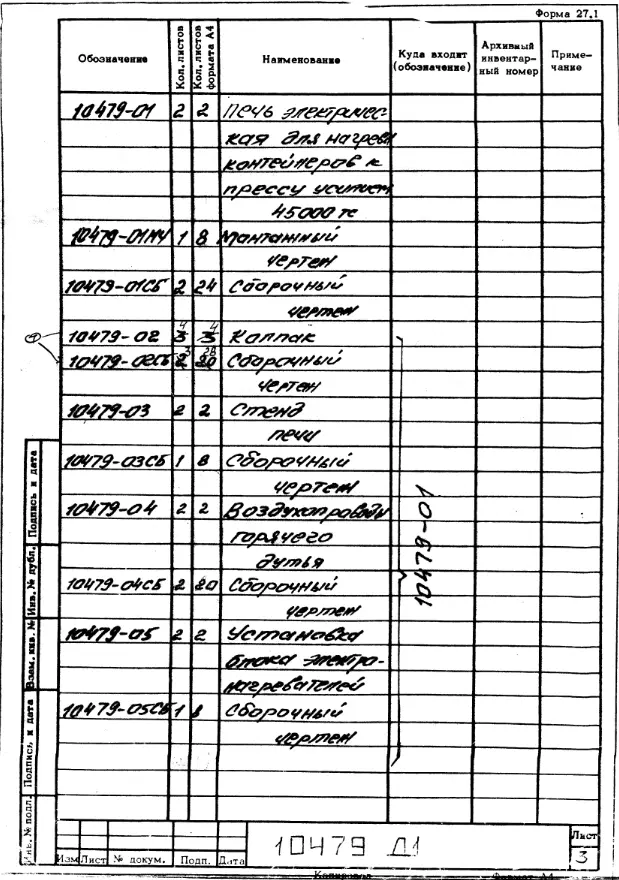 Форма 27.1
Обозначение Кол. листов Кол. листов формата А4 Наименование Куда входит (обозначение) Архивный инвентарный номер Примечание
10479-01 2 2 Печь электричес-
кая для нагрева
контейнеров к
прессу усилием
45000 тс
10479-01МЧ 1 8 Монтажный
чертеж
10479-01СБ 2 24 Сборочный
чертеж
4 4
① 10479-02 3 3 Колпак
3 28
10479-02СБ 2 20 Сборочный
чертеж
10479-03 2 2 Стенд
печи
10479-03СБ 1 8 Сборочный
чертеж
10479-04 2 2 Воздухопроводы
горячего
дутья
10479-04СБ 2 20 Сборочный
чертеж
10479-05 2 2 Установка
блока электро-
нагревателей
10479-05СБ 1 8 Сборочный
чертеж
10479-01
Подпись и дата
Инв. № дубл.
Взам. инв. №
Подпись и дата
Инв. № подл.
Изм Лист № докум. Подп. Дата
10479 Д1
Лист
3
Копировал Формат А4